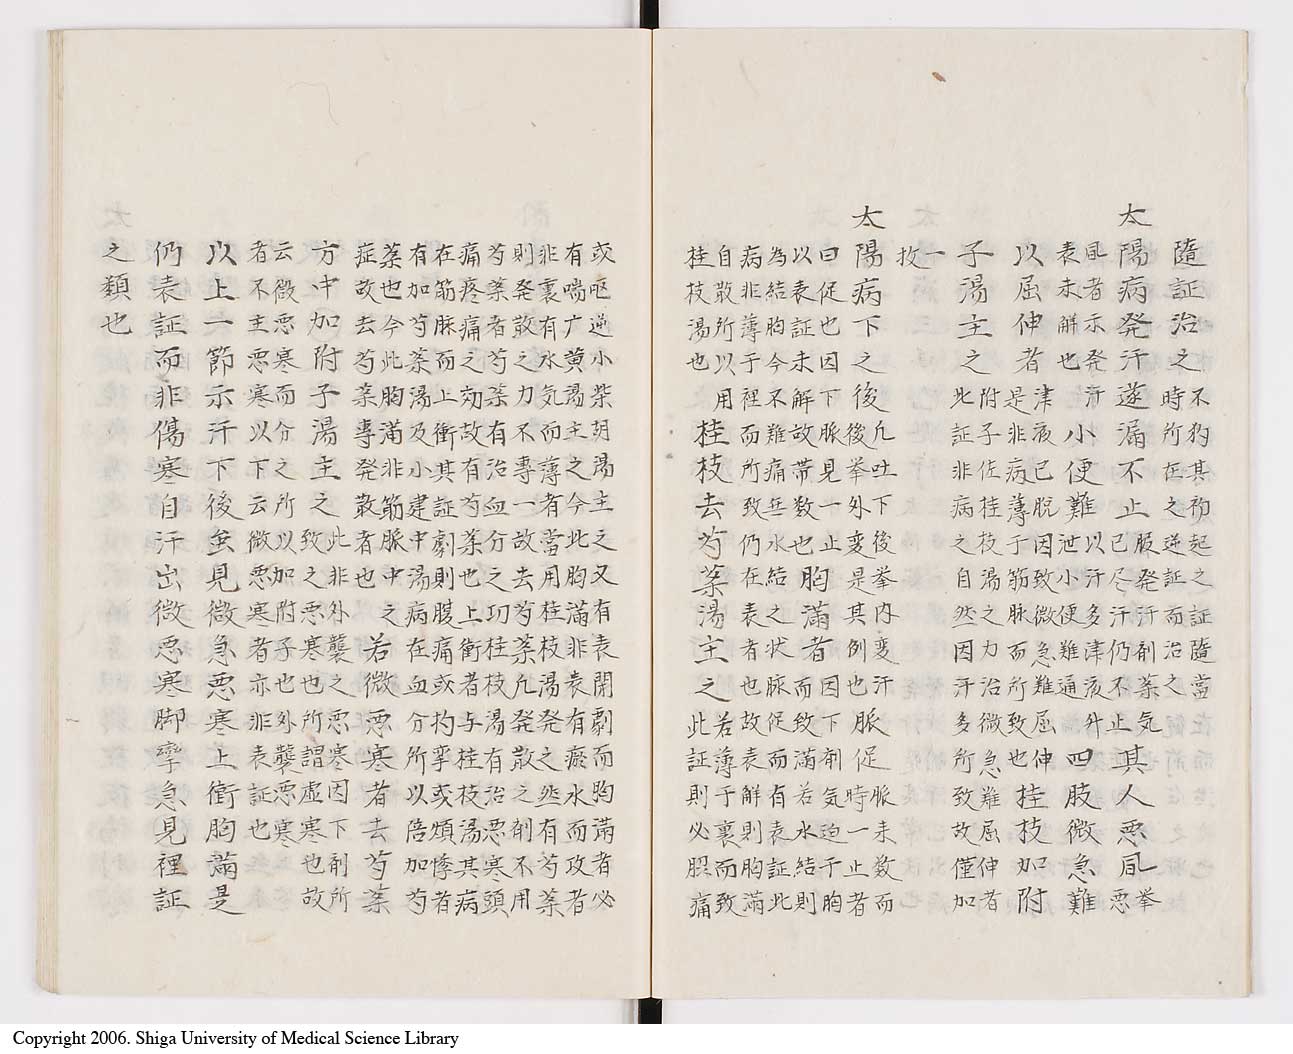 隨証治之不狗其初起之証隨當
時所在之逆証而治之
太陽病発汗遂漏不止服発汗剤薬気
已尽汗仍不止其人悪風挙
悪
風者示発汗
表未解也小便難以汗多津液升
泄小便難通四肢微急難
以屈伸者津液已脱因致微急難屈伸
是非病薄于筋脉而所致也桂枝加附
子湯主之附子佐桂枝湯之力治微急難屈伸者
此証非病之自然因汗多所致故僅加
一
枚
太陽病下之後凡吐下後挙内変汗
後挙外変是其例也脈促脈未数而
時一止者
曰促也因下脈見一止
以表証未解故帯数也胸満者因下剤気迫于胸
而致満若水結則
為結胸今不難痛無水結之状脉促而有表証此
病非薄于裡而所致仍在表者也故表解則胸満
自散所以用
桂枝湯也桂枝去芍薬湯主之若薄于裏而致
此証則必服痛
或嘔逆小柴胡湯主之又有表閉劇而胸満者必
有喘广黄湯主之今此胸満非表有瘀水而攻者
非裏有水気而薄者當用桂枝湯発之然有芍薬
則発散之力不專一故去芍薬凡発散之剤不用
芍薬者芍薬有治血分之功桂枝湯有治悪寒頭
痛疼痛之効故有芍薬也上衝者与桂枝湯其病
在筋脉而上衝其証劇則腹痛或拘挛或煩悸者
有加芍薬湯及小建中湯病在血分所以倍加芍
薬也今此胸満非筋脈中之
症故去芍薬專発散者也若微悪寒者去芍薬
方中加附子湯主之此非外襲之悪寒因下剤所
致之悪寒也所謂虚寒也故
云微悪寒而分之所以加附子也外襲悪寒
者不主悪寒以下云微悪寒者亦非表証也
以上一節示汗下後虽見微急悪寒上衝胸満是
仍表証而非傷寒自汗出微悪寒脚孿急見裡証
之類也
Copyright 2006. Shiga University of Medical Science Library